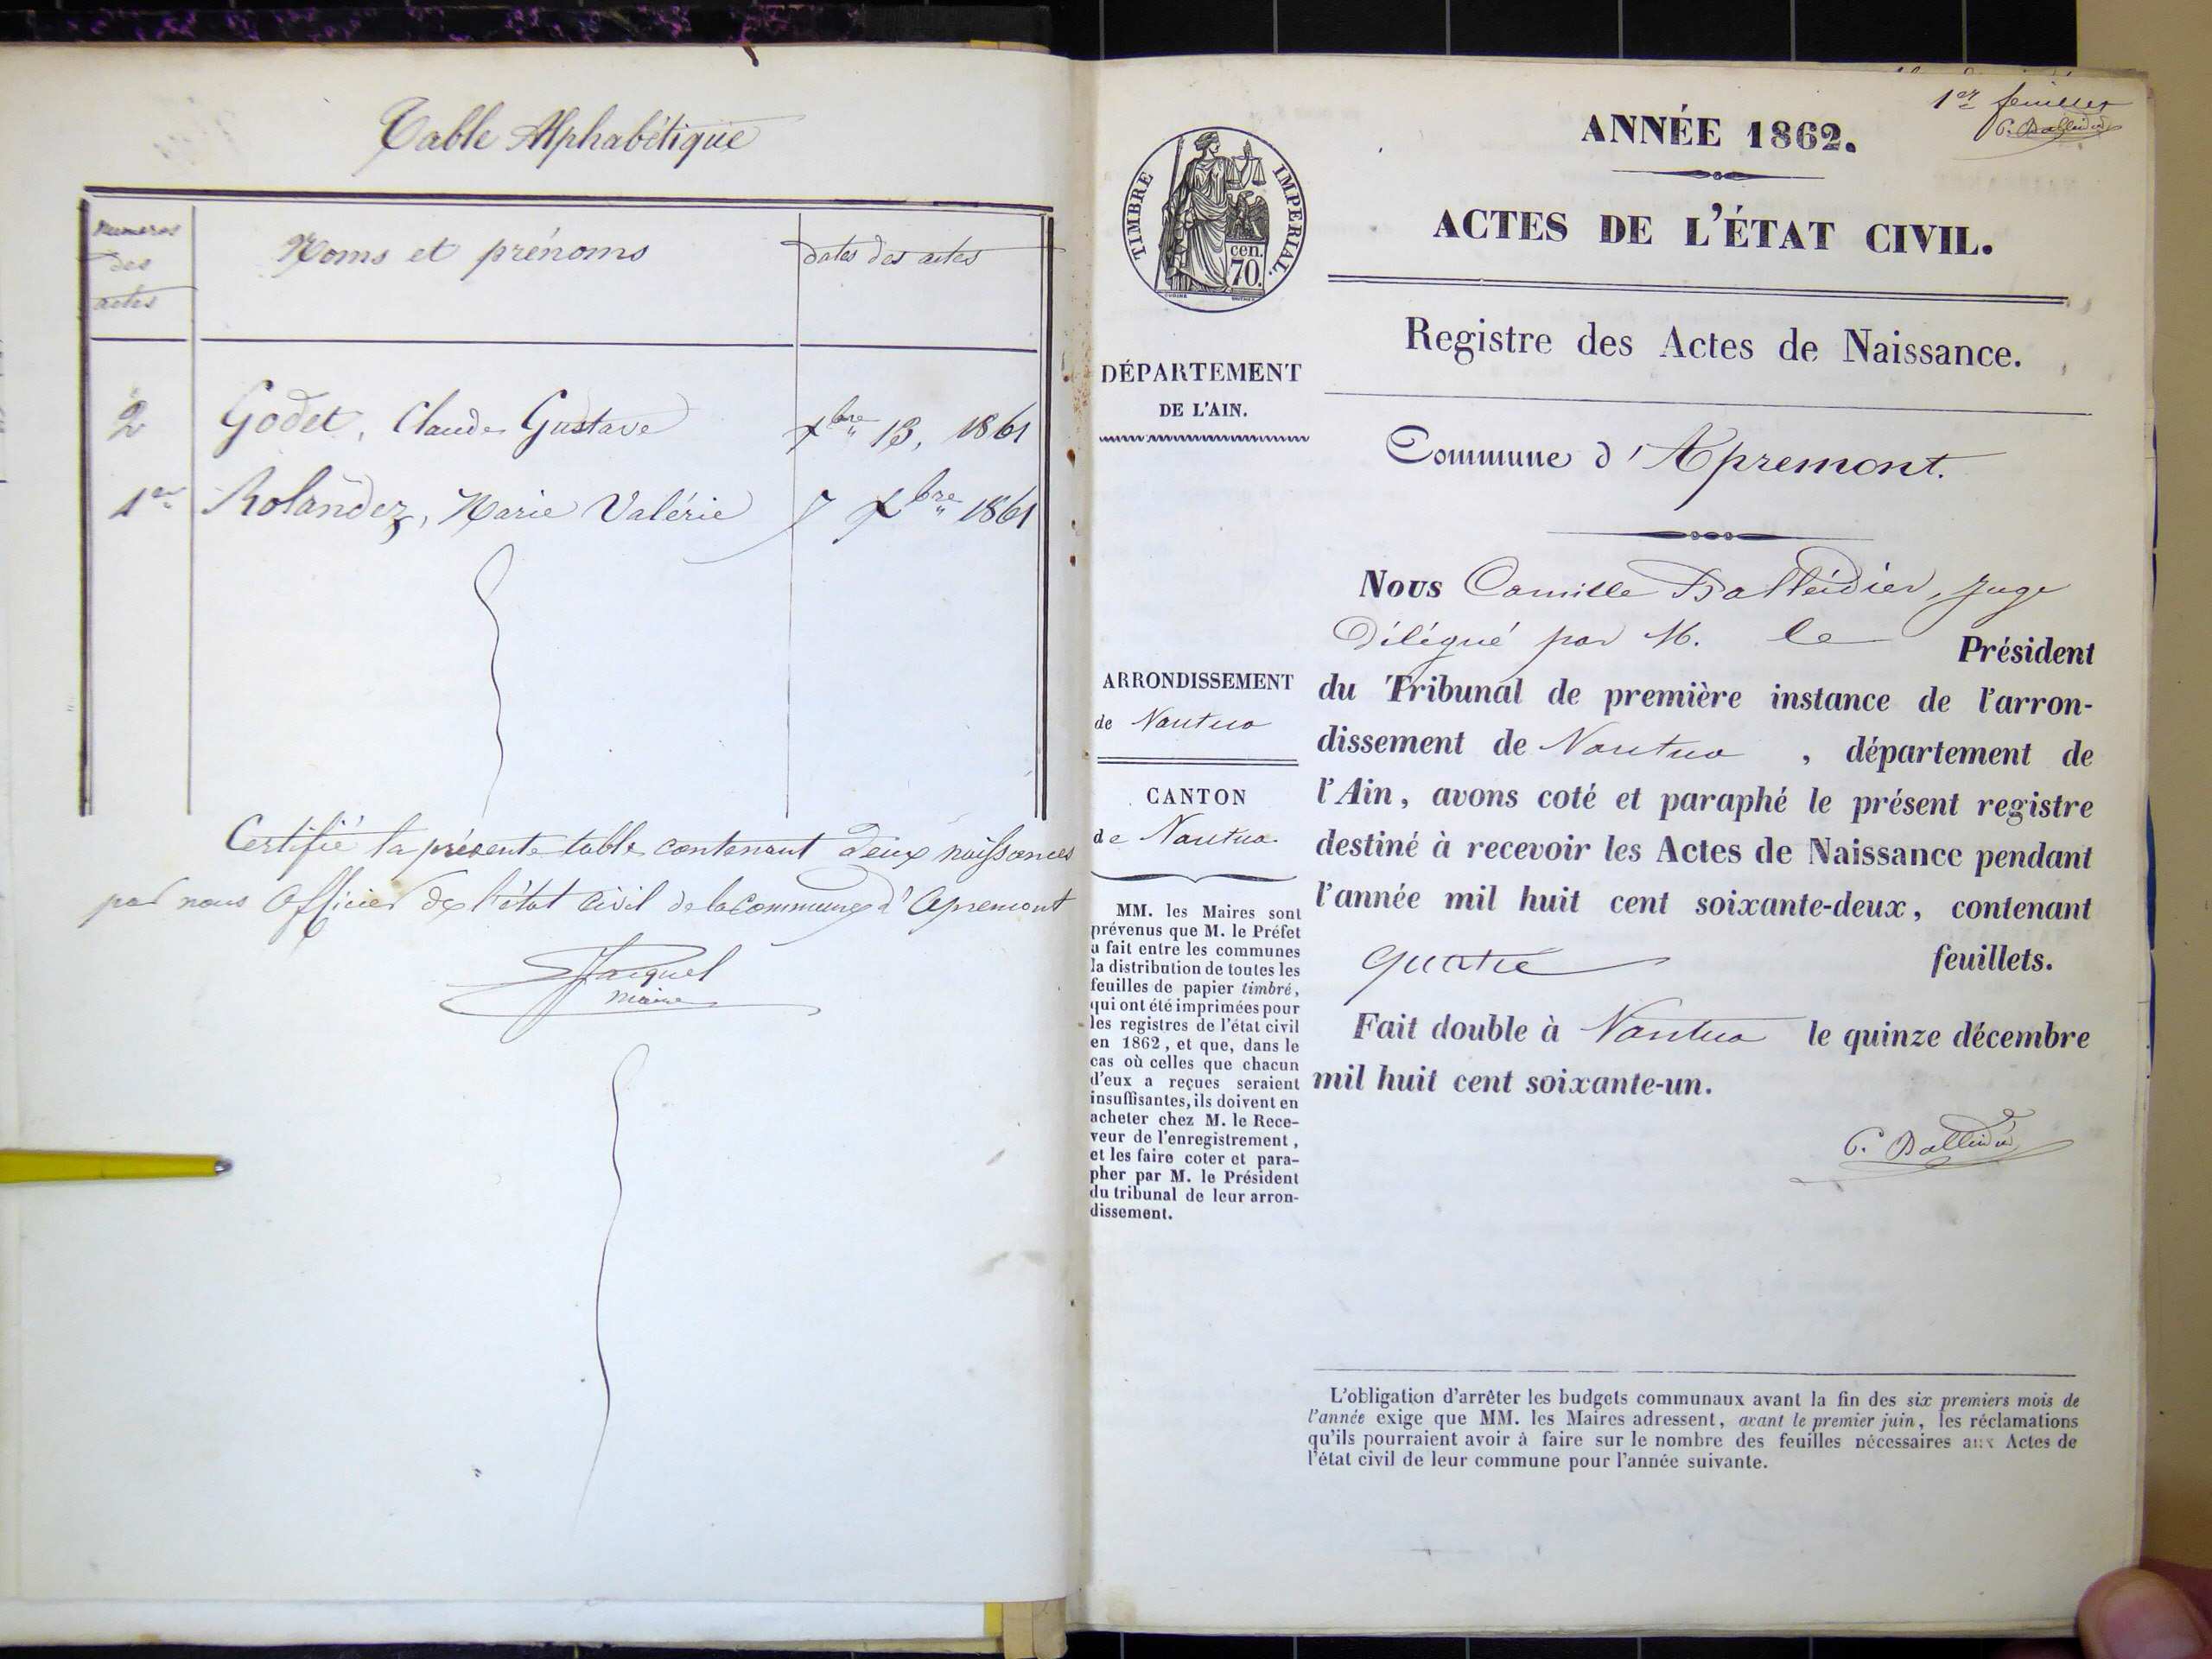 Table Alphabétique
Numéros des actes
Noms et prénoms
dates des actes
2 Godet, Claude Gustave Xbre 13, 1861
1er Rolandez, Marie Valérie 7 Xbre 1861
Certifié la présente table contenant deux naissances
par nous Officier de l'état civil de la Commune d'Apremont
Jacquet
maire
1er feuillet
TIMBRE IMPERIAL.
cen.
70.
ANNÉE 1862.
ACTES DE L'ÉTAT CIVIL.
Registre des Actes de Naissance.
Commune d'Apremont.
DÉPARTEMENT
DE L'AIN.
ARRONDISSEMENT
de Nantua
CANTON
de Nantua.
MM. les Maires sont
prévenus que M. le Préfet
a fait entre les communes
la distribution de toutes les
feuilles de papier timbré,
qui ont été imprimées pour
les registres de l'état civil
en 1862, et que, dans le
cas où celles que chacun
d'eux a reçues seraient
insuffisantes, ils doivent en
acheter chez M. le Rece-
veur de l'enregistrement,
et les faire coter et para-
pher par M. le Président
du tribunal de leur arron-
dissement.
Nous Camille Balleidier, Juge
Délégué par M. le Président
du Tribunal de première instance de l'arron-
dissement de Nantua , département de
l'Ain, avons coté et paraphé le présent registre
destiné à recevoir les Actes de Naissance pendant
l'année mil huit cent soixante-deux, contenant
quatre feuillets.
Fait double à Nantua le quinze décembre
mil huit cent soixante-un.
C. Balleidier
L'obligation d'arrêter les budgets communaux avant la fin des six premiers mois de
l'année exige que MM. les Maires adressent, avant le premier juin, les réclamations
qu'ils pourraient avoir à faire sur le nombre des feuilles nécessaires aux Actes de
l'état civil de leur commune pour l'année suivante.